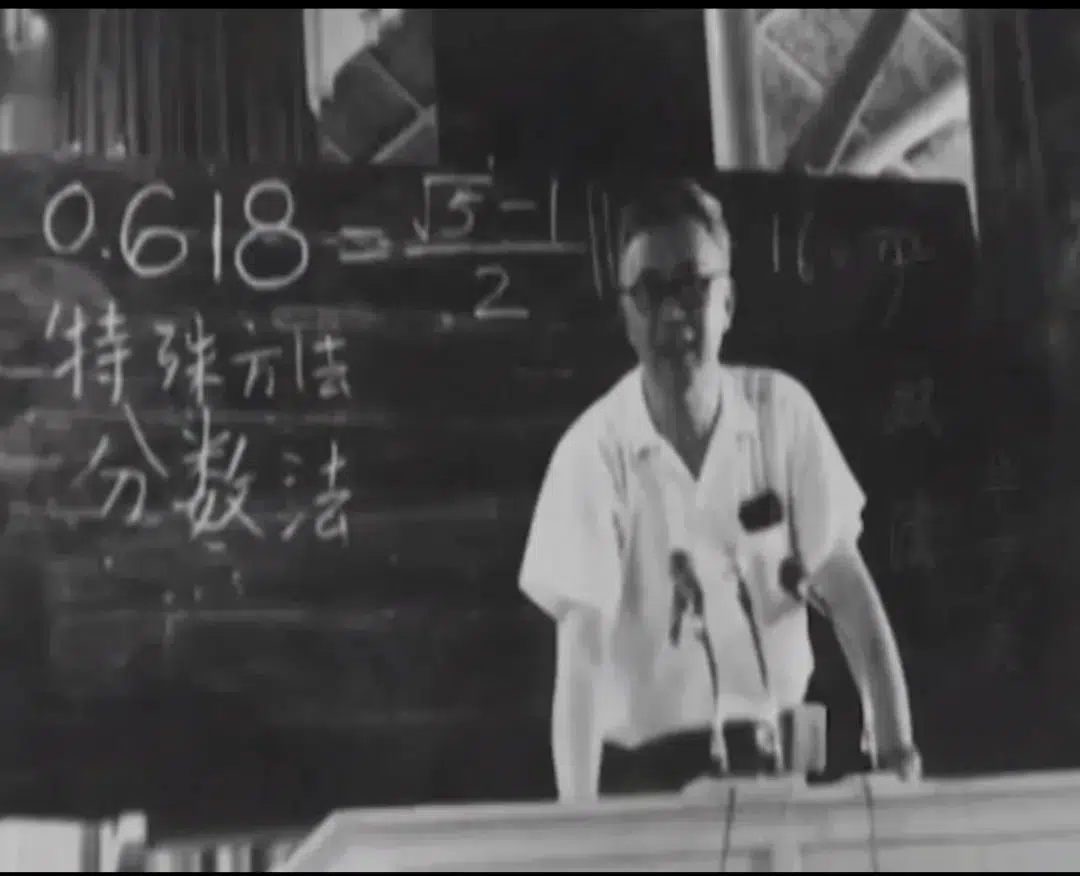 0.618 = (√5-1)/2
特殊方法
分数法